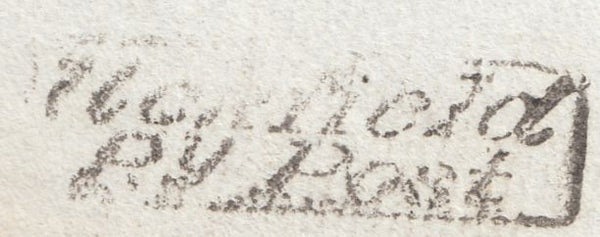 Henfield
Py Post